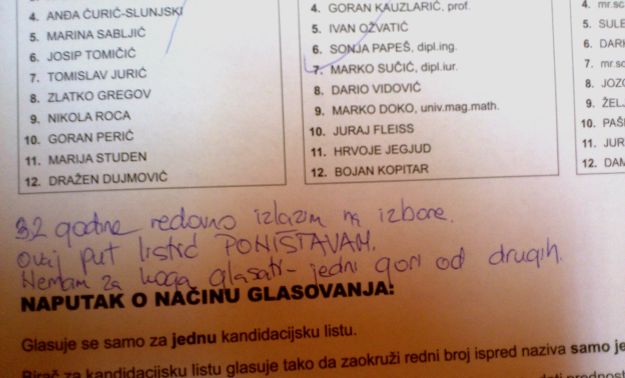 4. ANĐA ĆURIĆ-SLUNJSKI
5. MARINA SABLJIĆ
6. JOSIP TOMIČIĆ
7. TOMISLAV JURIĆ
8. ZLATKO GREGOV
9. NIKOLA ROCA
10. GORAN PERIĆ
11. MARIJA STUDEN
12. DRAŽEN DUJMOVIĆ
4. GORAN KAUZLARIĆ, prof.
5. IVAN OŽVATIĆ
6. SONJA PAPEŠ, dipl.ing.
7. MARKO SUČIĆ, dipl.iur.
8. DARIO VIDOVIĆ
9. MARKO DOKO, univ.mag.math.
10. JURAJ FLEISS
11. HRVOJE JEGJUD
12. BOJAN KOPITAR
4. mr.sc
5. SULE
6. DARI
7. mr.sc
8. JOZO
9. ŽEL
10. PAŠ
11. JUR
12. DAM
32 godine redovno izlazim na izbore.
Ovaj put listić PONIŠTAVAM.
Nemam za koga glasati - jedni gori od drugih.
NAPUTAK O NAČINU GLASOVANJA:
Glasuje se samo za jednu kandidacijsku listu.
Birač za kandidacijsku listu glasuje tako da zaokruži redni broj ispred naziva samo je
prednost